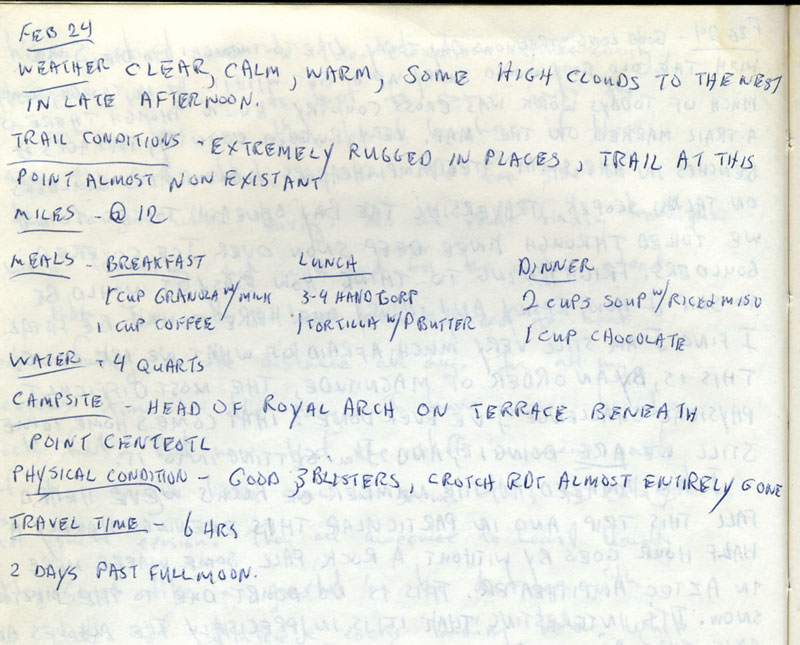 FEB 24
WEATHER CLEAR, CALM, WARM, SOME HIGH CLOUDS TO THE WEST
IN LATE AFTERNOON.
TRAIL CONDITIONS - EXTREMELY RUGGED IN PLACES, TRAIL AT THIS
POINT ALMOST NON EXISTANT
MILES - @ 12
MEALS - BREAKFAST LUNCH DINNER
1 CUP GRANOLA W/ MILK 3-4 HAND GORP 2 CUPS SOUP W/ RICE & MISO
1 CUP COFFEE 1 TORTILLA W/ P BUTTER 1 CUP CHOCOLATE
WATER - 4 QUARTS
CAMPSITE HEAD OF ROYAL ARCH ON TERRACE BENEATH
POINT CENTEOTL
PHYSICAL CONDITION - GOOD 3 BLISTERS, CROTCH ROT ALMOST ENTIRELY GONE
TRAVEL TIME - 6 HRS
2 DAYS PAST FULL MOON.